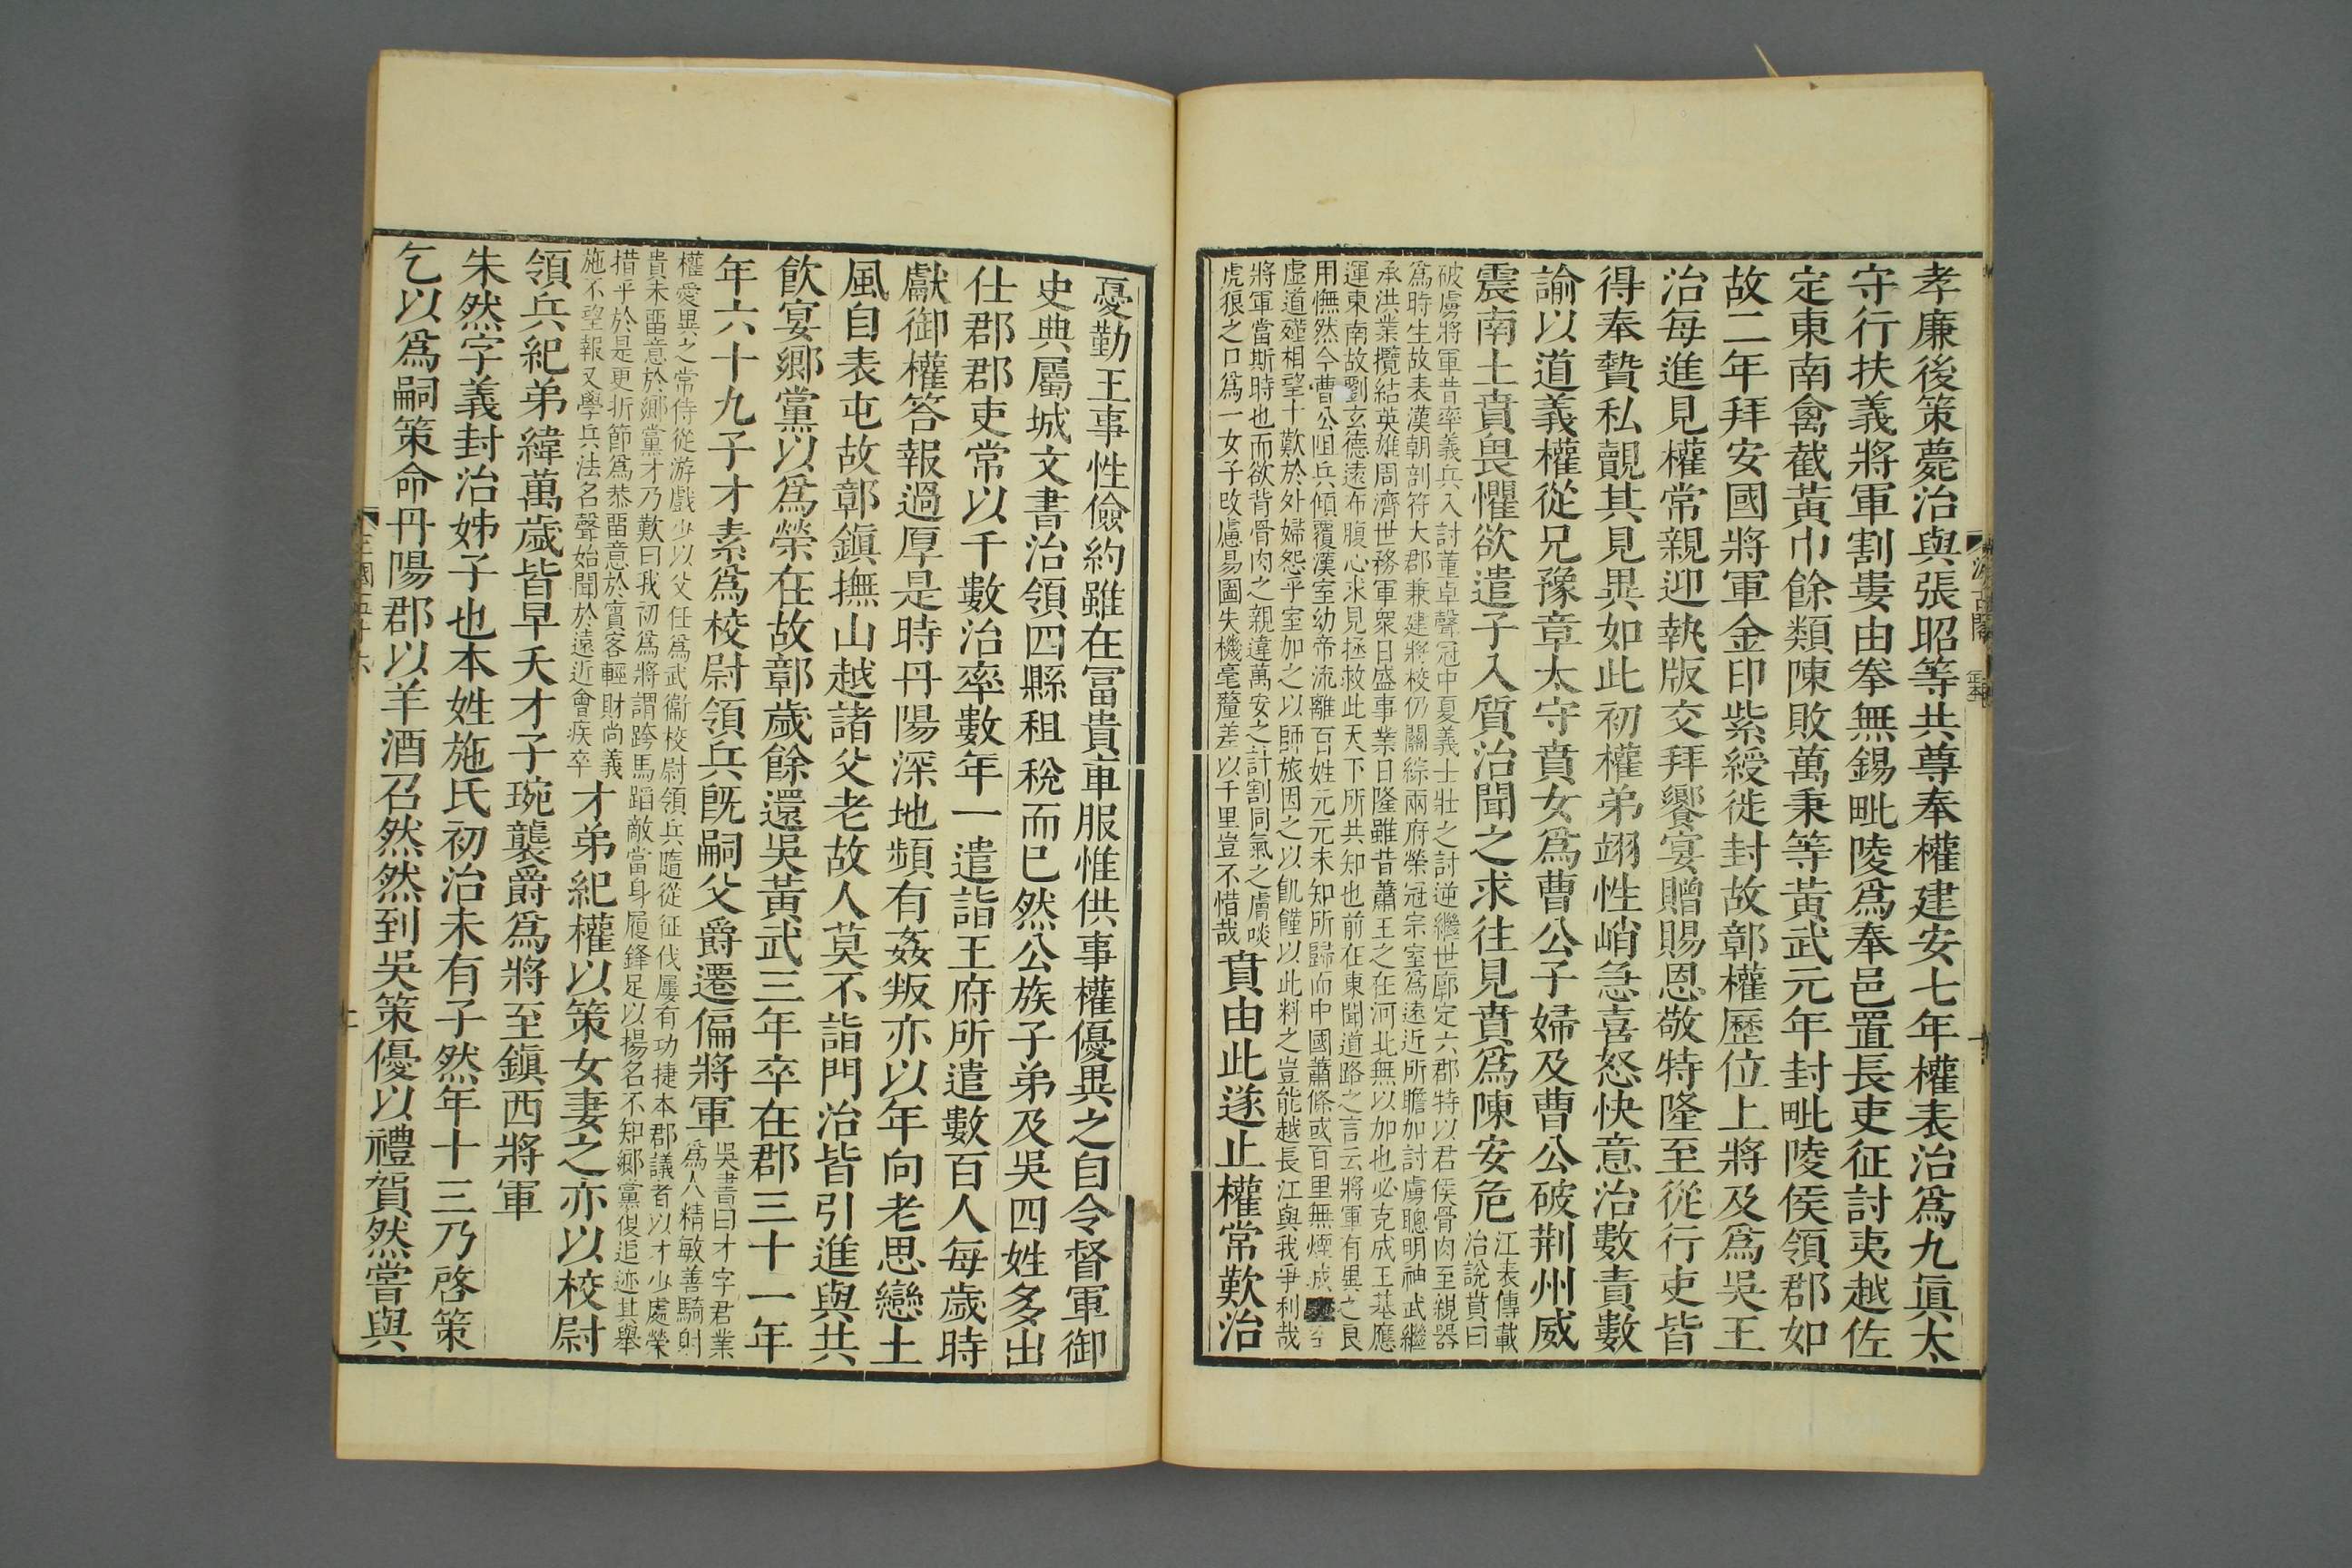 孝廉後策薨治與張昭等共尊奉權建安七年權表治爲九眞太
守行扶義將軍割婁由拳無錫毗陵爲奉邑置長吏征討夷越佐
定東南禽截黃巾餘類陳敗萬秉等黃武元年封毗陵侯領郡如
故二年拜安國將軍金印紫綬徙封故鄣權歷位上將及爲吳王
治每進見權常親迎執版交拜饗宴贈賜恩敬特隆至從行吏皆
得奉贄私覿其見異如此初權弟翊性峭急喜怒快意治數責數
諭以道義權從兄豫章太守賁女爲曹公子婦及曹公破荆州威
震南土賁畏懼欲遣子入質治聞之求往見賁爲陳安危
江表傳載
治說賁曰
破虜將軍昔率義兵入討董卓聲冠中夏義士壯之討逆繼世廓定六郡特以君侯骨肉至親器
爲時生故表漢朝剖符大郡兼建將校仍關綜兩府榮冠宗室爲遠近所瞻加討虜聰明神武繼
承洪業攬結英雄周濟世務軍衆日盛事業日隆雖昔蕭王之在河北無以加也必克成王基應
運東南故劉玄德遠布腹心求見拯救此天下所共知也前在東聞道路之言云將軍有異之良
用憮然今曹公阻兵傾覆漢室幼帝流離百姓元元未知所歸而中國蕭條或百里無煙城
虛道殣相望士歎於外婦怨乎室加之以師旅因之以飢饉以此料之豈能越長江與我爭利哉
將軍當斯時也而欲背骨肉之親違萬安之計割同氣之膚啖
虎狼之口爲一女子改慮易圖失機毫釐差以千里豈不惜哉
賁由此遂止權常歎治
憂勤王事性儉約雖在富貴車服惟供事權優異之自令督軍御
史典屬城文書治領四縣租稅而已然公族子弟及吳四姓多出
仕郡郡吏常以千數治率數年一遣詣王府所遣數百人每歲時
獻御權答報過厚是時丹陽深地頻有姦叛亦以年向老思戀土
風自表屯故鄣鎮撫山越諸父老故人莫不詣門治皆引進與共
飮宴鄉黨以爲榮在故鄣歲餘還吳黃武三年卒在郡三十一年
年六十九子才素爲校尉領兵旣嗣父爵遷偏將軍
吳書曰才字君業
爲人精敏善騎射
權愛異之常侍從游戲少以父任爲武衞校尉領兵隨從征伐屢有功捷本郡議者以才少處榮
貴未畱意於鄉黨才乃歎曰我初爲將謂跨馬蹈敵當身履鋒足以揚名不知鄉黨復追迹其舉
措乎於是更折節爲恭畱意於賓客輕財尚義
施不望報又學兵法名聲始聞於遠近會疾卒
才弟紀權以策女妻之亦以校尉
領兵紀弟緯萬歲皆早夭才子琬襲爵爲將至鎮西將軍
朱然字義封治姊子也本姓施氏初治未有子然年十三乃啓策
乞以爲嗣策命丹陽郡以羊酒召然然到吳策優以禮賀然嘗與